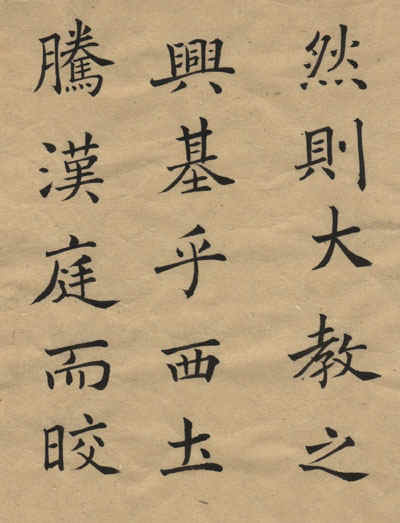 然則大教之
興基乎西土
騰漢庭而晈